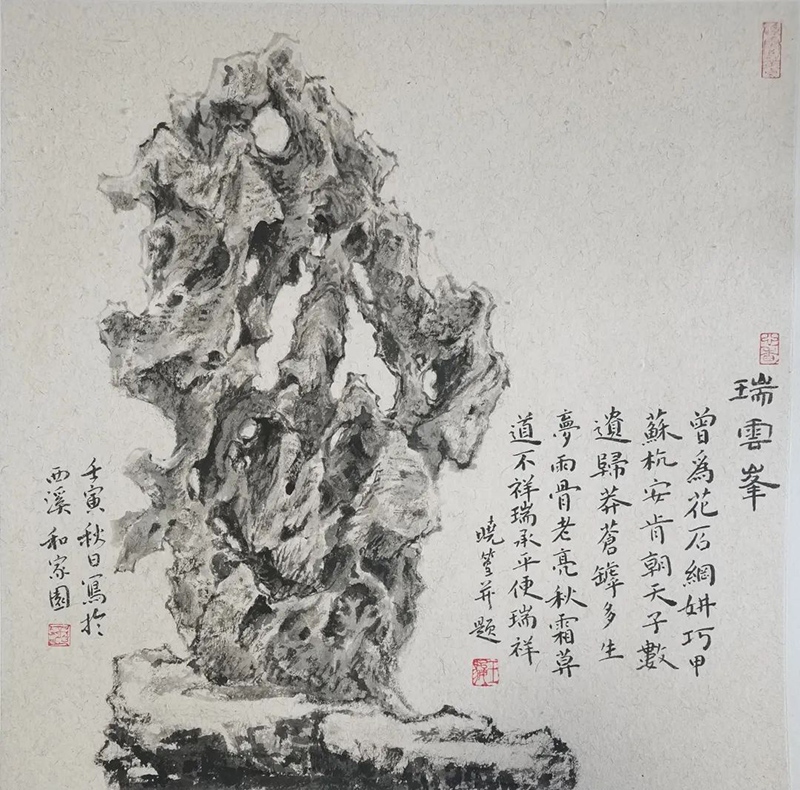 瑞雲峯
曾爲花石綱妍巧甲
蘇杭安肯朝天子數
遺歸莽蒼罅多生
夢雨骨老亮秋霜莫
道不祥瑞承平便瑞祥
曉 并題
壬寅秋日寫於
西溪和家園